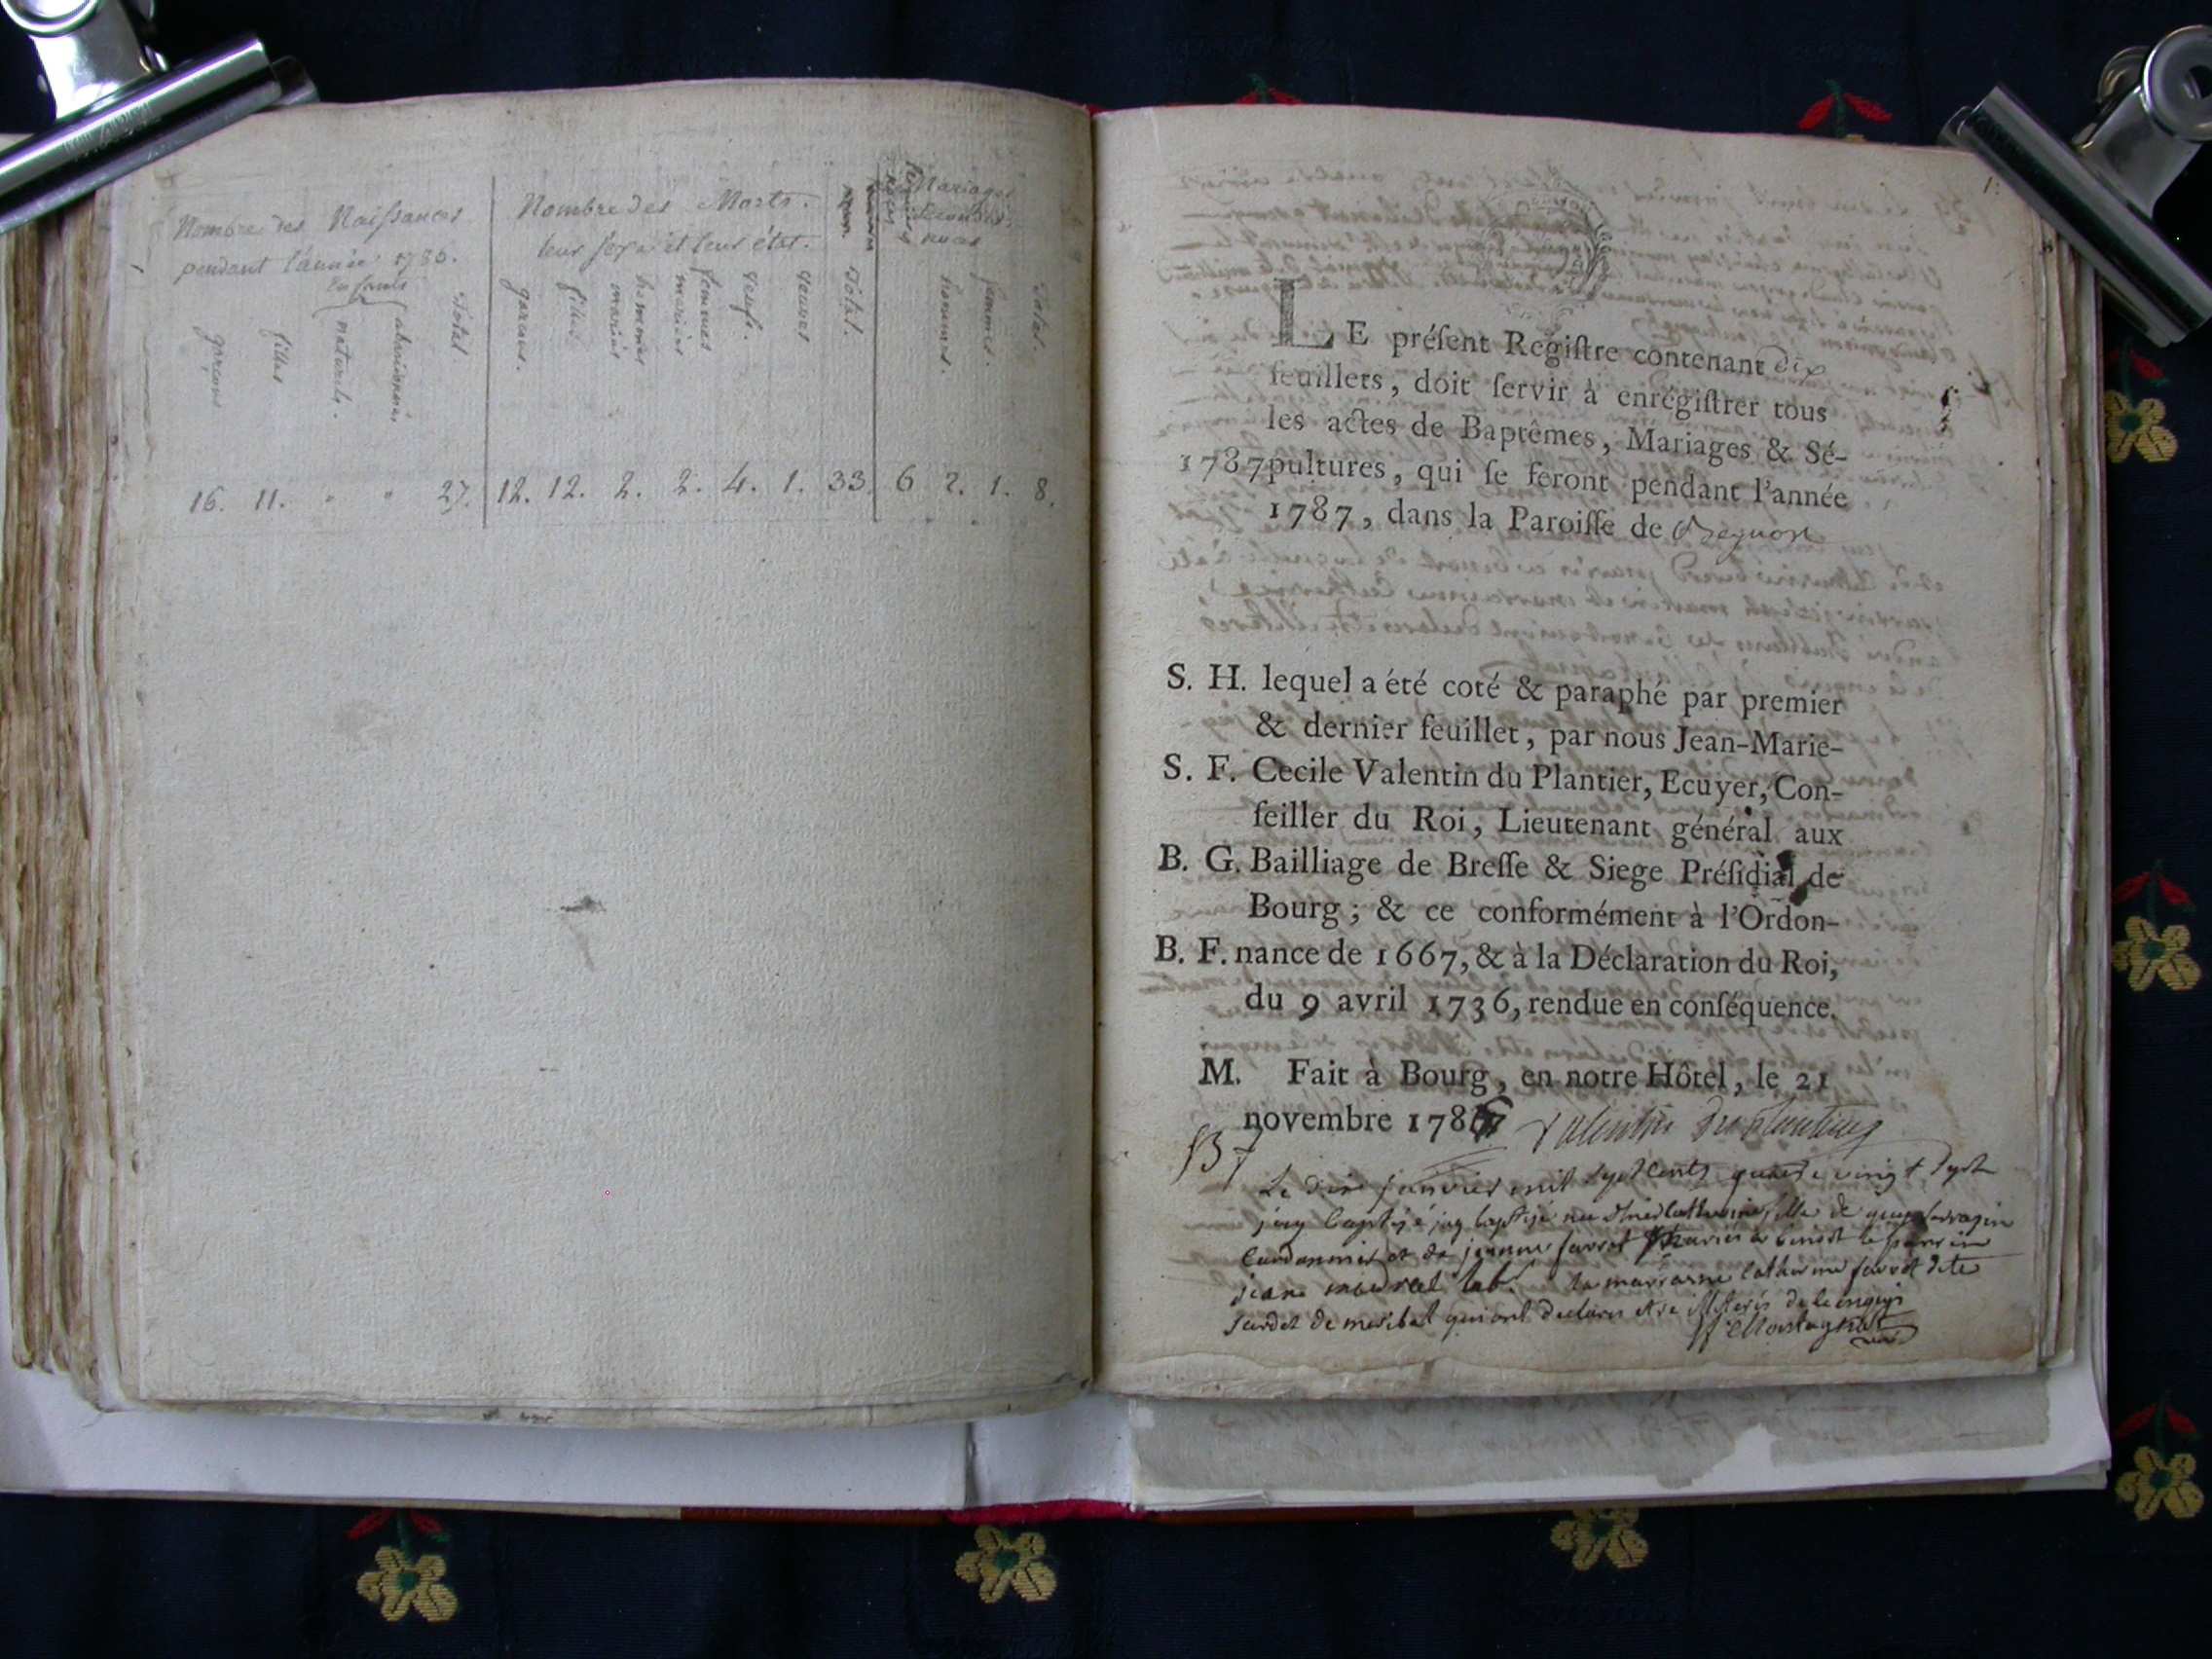 Nombre des Naissances
pendant l'année 1786.
Enfants
garçons
filles
naturels.
abandonnés
Total
Nombre des Morts.
leur sexe et leur état.
garçons.
filles
hommes mariés
femmes mariées
veufs.
veuves
Total.
Mariages
secondes.
noces
hommes.
femmes.
Total.
16. 11. " " 27. 12. 12. 2. 2. 4. 1. 33. 6 2. 1. 8.
1.
LE préſent Regiſtre contenant dix
feuillets, doit ſervir à enrégiſtrer tous
les actes de Baptêmes, Mariages & Sé-
1787 pultures, qui ſe feront pendant l'année
1787, dans la Paroiſſe de
S. H. lequel a été coté & paraphé par premier
& dernier feuillet, par nous Jean-Marie-
S. F. Cecile Valentin du Plantier, Ecuyer, Con-
ſeiller du Roi, Lieutenant général aux
B. G. Bailliage de Breſſe & Siege Préſidial de
Bourg ; & ce conformément à l'Ordon-
B. F. nance de 1667, & à la Déclaration du Roi,
du 9 avril 1736, rendue en conſéquence.
M. Fait à Bourg, en notre Hôtel, le 21
novembre 1786 Valentin Duplantier
B
Le dix janvier mil sept cents quatre vingt sept
j'ay baptisé jay baptisé catherine fille de
cordonnier et de jeanne favrot mariés a benost le parrin
jean lab. la marraine catherine favrot dite
qui ont déclaré etre illiterés de ce enquis
Montagnat